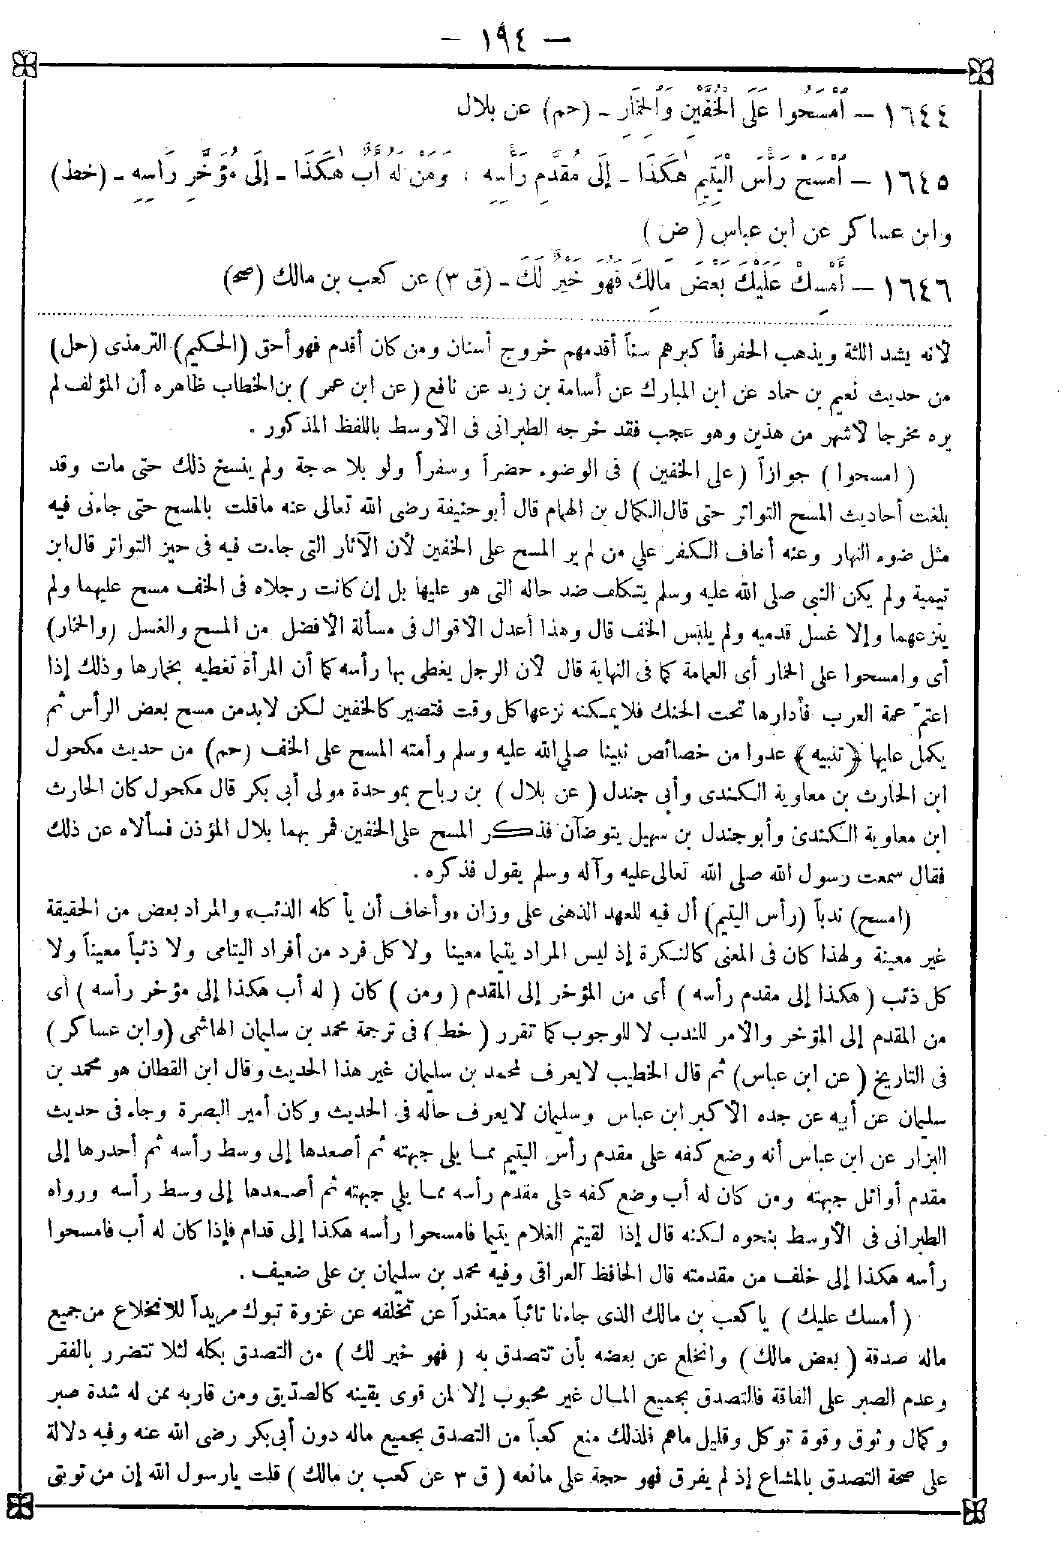 — ١٩٤ —
١٦٤٤ — اَمْسَحُوا عَلَى الْخُفَّيْنِ وَالْخِمَارِ - (حم) عن بلال
١٦٤٥ — اَمْسَحْ رَأْسَ الْيَتِيمِ هٰكَذَا - إِلَى مُقَدَّمِ رَأْسِهِ ، وَمَنْ لَهُ أَبٌ هٰكَذَا - إِلَى مُؤَخَّرِ رَأْسِهِ - (خط)
وابن عساكر عن ابن عباس (ض)
١٦٤٦ — أَمْسِكْ عَلَيْكَ بَعْضَ مَالِكَ فَهُوَ خَيْرٌ لَكَ - (ق ٣) عن كعب بن مالك (صح)
لأنه يشد اللثة ويذهب الحفر فأكبرهم سناً أقدمهم خروج أسنان ومن كان أقدم فهو أحق (الحكيم) الترمذى (حل)
من حديث نعيم بن حماد عن ابن المبارك عن أسامة بن زيد عن نافع (عن ابن عمر) بن الخطاب ظاهره أن المؤلف لم
يره مخرجا لأشهر من هذين وهو عجب فقد خرجه الطبرانى فى الأوسط باللفظ المذكور .
(امسحوا) جوازاً (على الخفين) فى الوضوء حضراً وسفراً ولو بلا حاجة ولم ينسخ ذلك حتى مات وقد
بلغت أحاديث المسح التواتر حتى قال الكمال بن الهمام قال أبو حنيفة رضى الله تعالى عنه ماقلت بالمسح حتى جاءنى فيه
مثل ضوء النهار وعنه أخاف الكفر على من لم ير المسح على الخفين لأن الآثار التى جاءت فيه فى حيز التواتر قال ابن
تيمية ولم يكن النبى صلى الله عليه وسلم يتكلف ضد حاله التى هو عليها بل إن كانت رجلاه فى الخف مسح عليهما ولم
ينزعهما وإلا غسل قدميه ولم يلبس الخف قال وهذا أعدل الأقوال فى مسألة الأفضل من المسح والغسل (والخمار)
أى وامسحوا على الخمار أى العمامة كما فى النهاية قال لأن الرجل يغطى بها رأسه كما أن المرأة تغطيه بخمارها وذلك إذا
اعتمّ عمة العرب فأدارها تحت الحنك فلا يمكنه نزعها كل وقت فتصير كالخفين لكن لابد من مسح بعض الرأس ثم
يكمل عليها ﴿تنبيه﴾ عدوا من خصائص نبينا صلى الله عليه وسلم وأمته المسح على الخف (حم) من حديث مكحول
ابن الحارث بن معاوية الكندى وأبى جندل (عن بلال) بن رباح بموحدة مولى أبى بكر قال مكحول كان الحارث
ابن معاوية الكندى وأبو جندل بن سهيل يتوضآن فذكر المسح على الخفين فمر بهما بلال المؤذن فسألاه عن ذلك
فقال سمعت رسول الله صلى الله تعالى عليه وآله وسلم يقول فذكره .
(امسح) ندباً (رأس اليتيم) أل فيه للعهد الذهنى على وزان «وأخاف أن يأكله الذئب» والمراد بعض من الحقيقة
غير معينة ولهذا كان فى المعنى كالنكرة إذ ليس المراد يتيما معينا ولا كل فرد من أفراد اليتامى ولا ذئباً معيناً ولا
كل ذئب (هكذا إلى مقدم رأسه) أى من المؤخر إلى المقدم (ومن) كان (له أب هكذا إلى مؤخر رأسه) أى
من المقدم إلى المؤخر والأمر للندب لا للوجوب كما تقرر (خط) فى ترجمة محمد بن سليمان الهاشمى (وابن عساكر)
فى التاريخ (عن ابن عباس) ثم قال الخطيب لا يعرف لمحمد بن سليمان غير هذا الحديث وقال ابن القطان هو محمد بن
سليمان عن أبيه عن جده الأكبر ابن عباس وسليمان لا يعرف حاله فى الحديث وكان أمير البصرة وجاء فى حديث
البزار عن ابن عباس أنه وضع كفه على مقدم رأس اليتيم مما يلى جبهته ثم أصعدها إلى وسط رأسه ثم أحدرها إلى
مقدم أوائل جبهته ومن كان له أب وضع كفه على مقدم رأسه مما يلى جبهته ثم أصعدها إلى وسط رأسه ورواه
الطبرانى فى الأوسط بنحوه لكنه قال إذا لقيتم الغلام يتيما فامسحوا رأسه هكذا إلى قدام فإذا كان له أب فامسحوا
رأسه هكذا إلى خلف من مقدمته قال الحافظ العراقى وفيه محمد بن سليمان بن على ضعيف .
(أمسك عليك) ياكعب بن مالك الذى جاءنا تائباً معتذراً عن تخلفه عن غزوة تبوك مريداً للانخلاع من جميع
ماله صدقة (بعض مالك) وانخلع عن بعضه بأن تتصدق به (فهو خير لك) من التصدق بكله لئلا تتضرر بالفقر
وعدم الصبر على الفاقة فالتصدق بجميع المال غير محبوب إلا لمن قوى يقينه كالصدّيق ومن قاربه ممن له شدة صبر
وكمال وثوق وقوة توكل وقليل ماهم فلذلك منع كعباً من التصدق بجميع ماله دون أبى بكر رضى الله عنه وفيه دلالة
على صحة التصدق بالمشاع إذ لم يفرق فهو حجة على مانعه (ق ٣ عن كعب بن مالك) قلت يارسول الله إن من توبتى